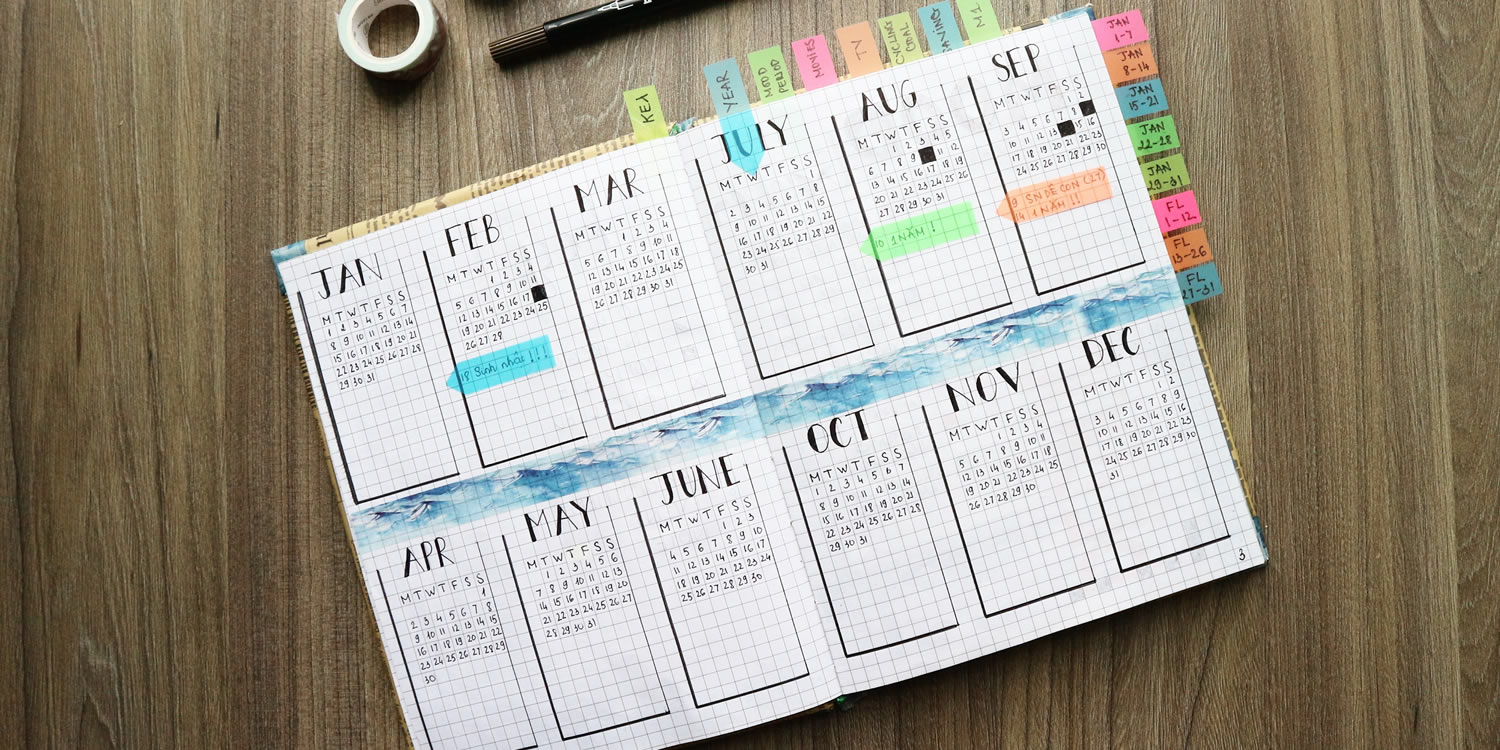 KEY
YEAR
MOOD
PERIOD
MOVIES
TV
CYCLING
GOAL
SAVING
JAN
1-7
JAN
8-14
JAN
15-21
JAN
22-28
JAN
29-31
FL
1-12
FL
13-26
FL
27-31
JAN
M T W T F S S
1 2 3 4 5 6 7
8 9 10 11 12 13 14
15 16 17 18 19 20 21
22 23 24 25 26 27 28
29 30 31
FEB
M T W T F S S
1 2 3 4
5 6 7 8 9 10 11
12 13 14 15 16 17
19 20 21 22 23 24 25
26 27 28
18 Sinh nhật !!!
MAR
M T W T F S S
1 2 3 4
5 6 7 8 9 10 11
12 13 14 15 16 17 18
19 20 21 22 23 24 25
26 27 28 29 30 31
JULY
M T W T F S S
1
2 3 4 5 6 7 8
9 10 11 12 13 14 15
16 17 18 19 20 21 22
23 24 25 26 27 28 29
30 31
AUG
M T W T F S S
1 2 3 4 5
6 7 8 9 11 12
13 14 15 16 17 18 19
20 21 22 23 24 25 26
27 28 29 30 31
10 1 NĂM !
SEP
M T W T F S S
1 2
3 4 5 6 7 8
10 11 12 13 15 16
17 18 19 20 21 22 23
24 25 26 27 28 29 30
9 SN DÊ CON (27)
14 1 NĂM !!
APR
M T W T F S S
1
2 3 4 5 6 7 8
9 10 11 12 13 14 15
16 17 18 19 20 21 22
23 24 25 26 27 28 29
30
MAY
M T W T F S S
1 2 3 4 5 6
7 8 9 10 11 12 13
14 15 16 17 18 19 20
21 22 23 24 25 26 27
28 29 30 31
JUNE
M T W T F S S
1 2 3
4 5 6 7 8 9 10
11 12 13 14 15 16 17
18 19 20 21 22 23 24
25 26 27 28 29 30
OCT
M T W T F S S
1 2 3 4 5 6 7
8 9 10 11 12 13 14
15 16 17 18 19 20 21
22 23 24 25 26 27 28
29 30 31
NOV
M T W T F S S
1 2 3 4
5 6 7 8 9 10 11
12 13 14 15 16 17 18
19 20 21 22 23 24 25
26 27 28 29 30
DEC
M T W T F S S
1 2
3 4 5 6 7 8 9
10 11 12 13 14 15 16
17 18 19 20 21 22 23
24 25 26 27 28 29 30
31
3